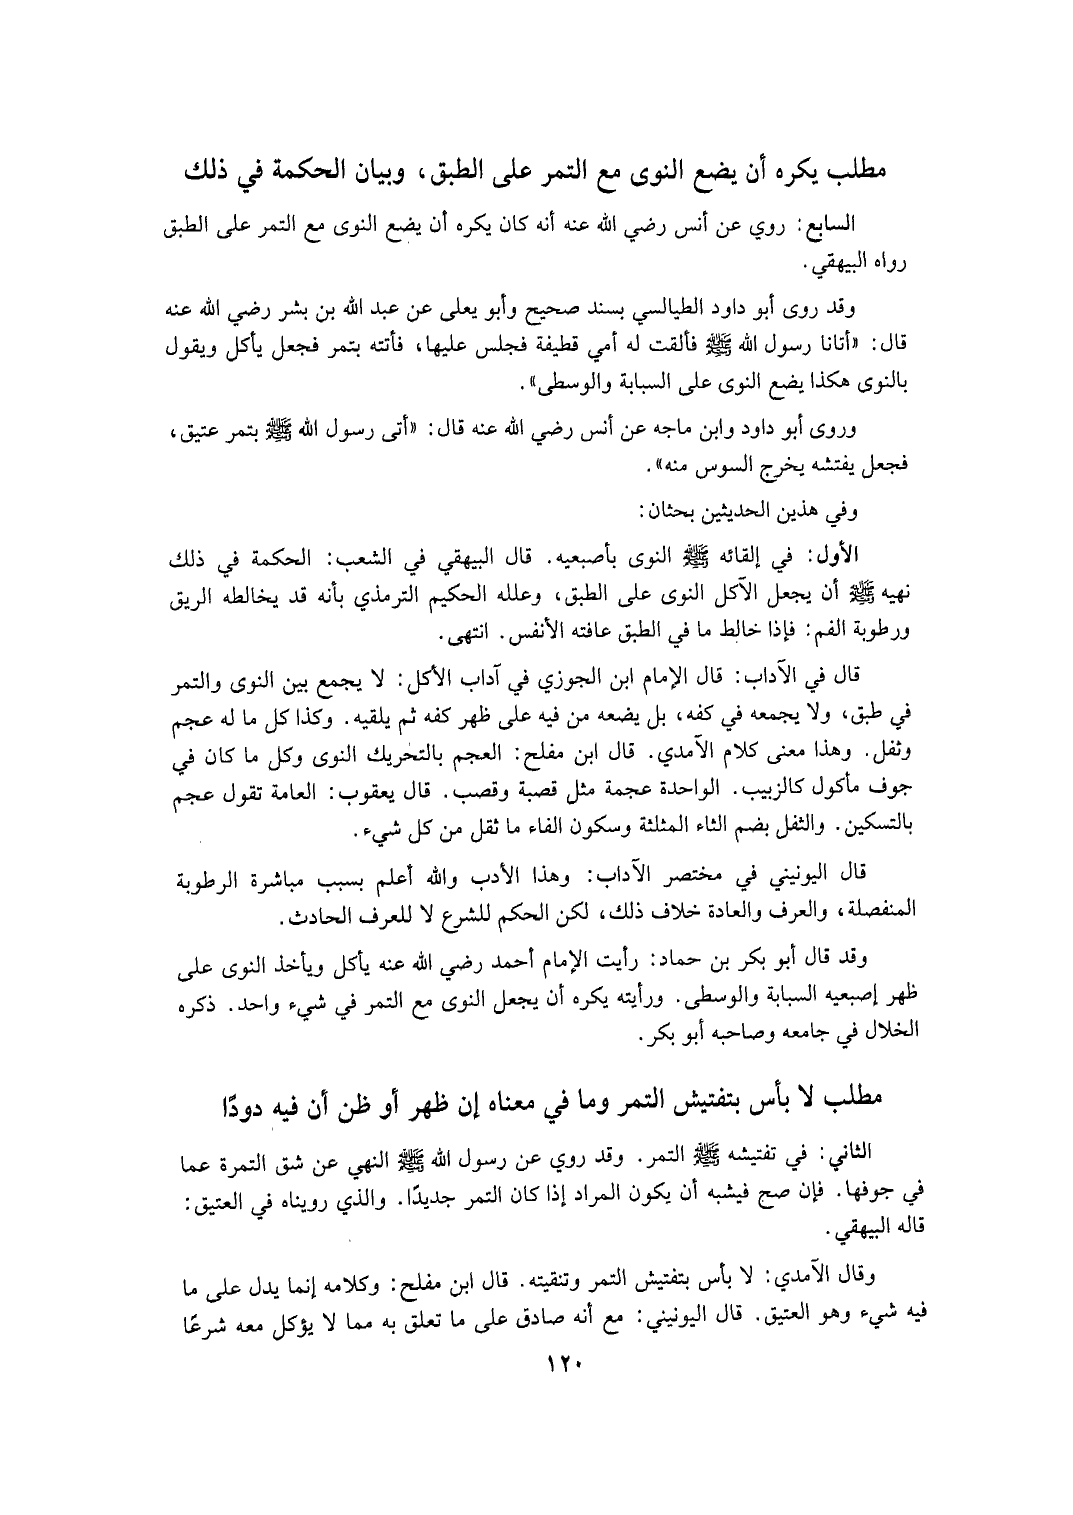 مطلب يكره أن يضع النوى مع التمر على الطبق، وبيان الحكمة في ذلك
السابع: روي عن أنس رضي الله عنه أنه كان يكره أن يضع النوى مع التمر على الطبق
رواه البيهقي.
وقد روى أبو داود الطيالسي بسند صحيح وأبو يعلى عن عبد الله بن بشر رضي الله عنه
قال: «أتانا رسول الله ﷺ فألقت له أمي قطيفة فجلس عليها، فأتته بتمر فجعل يأكل ويقول
بالنوى هكذا يضع النوى على السبابة والوسطى».
وروى أبو داود وابن ماجه عن أنس رضي الله عنه قال: «أتى رسول الله ﷺ بتمر عتيق،
فجعل يفتشه يخرج السوس منه».
وفي هذين الحديثين بحثان:
الأول: في إلقائه ﷺ النوى بأصبعيه. قال البيهقي في الشعب: الحكمة في ذلك
نهيه ﷺ أن يجعل الآكل النوى على الطبق، وعلله الحكيم الترمذي بأنه قد يخالطه الريق
ورطوبة الفم: فإذا خالط ما في الطبق عافته الأنفس. انتهى.
قال في الآداب: قال الإمام ابن الجوزي في آداب الأكل: لا يجمع بين النوى والتمر
في طبق، ولا يجمعه في كفه، بل يضعه من فيه على ظهر كفه ثم يلقيه. وكذا كل ما له عجم
وثفل. وهذا معنى كلام الآمدي. قال ابن مفلح: العجم بالتحريك النوى وكل ما كان في
جوف مأكول كالزبيب. الواحدة عجمة مثل قصبة وقصب. قال يعقوب: العامة تقول عجم
بالتسكين. والثفل بضم الثاء المثلثة وسكون الفاء ما ثقل من كل شيء.
قال اليونيني في مختصر الآداب: وهذا الأدب والله أعلم بسبب مباشرة الرطوبة
المنفصلة، والعرف والعادة خلاف ذلك، لكن الحكم للشرع لا للعرف الحادث.
وقد قال أبو بكر بن حماد: رأيت الإمام أحمد رضي الله عنه يأكل ويأخذ النوى على
ظهر إصبعيه السبابة والوسطى. ورأيته يكره أن يجعل النوى مع التمر في شيء واحد. ذكره
الخلال في جامعه وصاحبه أبو بكر.
مطلب لا بأس بتفتيش التمر وما في معناه إن ظهر أو ظن أن فيه دودًا
الثاني: في تفتيشه ﷺ التمر. وقد روي عن رسول الله ﷺ النهي عن شق التمرة عما
في جوفها. فإن صح فيشبه أن يكون المراد إذا كان التمر جديدًا. والذي رويناه في العتيق:
قاله البيهقي.
وقال الآمدي: لا بأس بتفتيش التمر وتنقيته. قال ابن مفلح: وكلامه إنما يدل على ما
فيه شيء وهو العتيق. قال اليونيني: مع أنه صادق على ما تعلق به مما لا يؤكل معه شرعًا
١٢٠